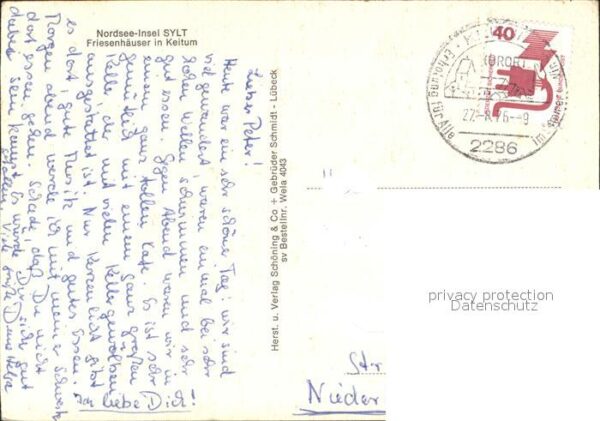 Nordsee-Insel SYLT
Friesenhäuser in Keitum
Lieber Peter!
Heute war ein sehr schöner Tag! wir sind
viel gewandert, waren einmal bei sehr
hohen Wellen schwimmen und sehr
gut essen. Gegen Abend waren wir in
einem ganz tollen Café. Es ist sehr
gemütlich mit einem ganz großen
Keller, der mit vielen Kellergewölben
ausgestattet ist. Nur Kerzenlicht gibt
es dort, gute Musik und gutes Essen.
Morgen abend werde ich mit meiner Schwester
dort essen gehen. Schade, daß Du nicht
dabei sein kannst. Es würde Dir sicher gut
gefallen. Viele Grüße Deine
Ich liebe Dich!
Herst. u. Verlag Schöning & Co + Gebrüder Schmidt - Lübeck
sv Bestellnr. Wela 4043
40
KURORT
Erholung für Alle
27.-8.76-9
2286
privacy protection
Datenschutz
Str
Nieder